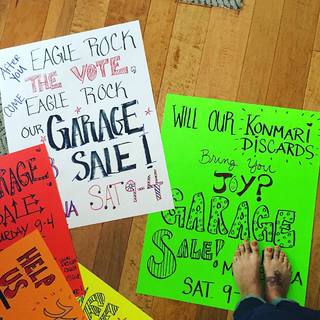 After
you
EAGLE ROCK
THE VOTE,
COME
EAGLE ROCK
OUR
GARAGE
SALE!
SAT 9-4
WILL OUR KONMARI
DISCARDS
Bring You
JOY?
GARAGE
SALE!
SAT. 9-
GARAGE
SALE
SATURDAY 9-4
HELP
US!